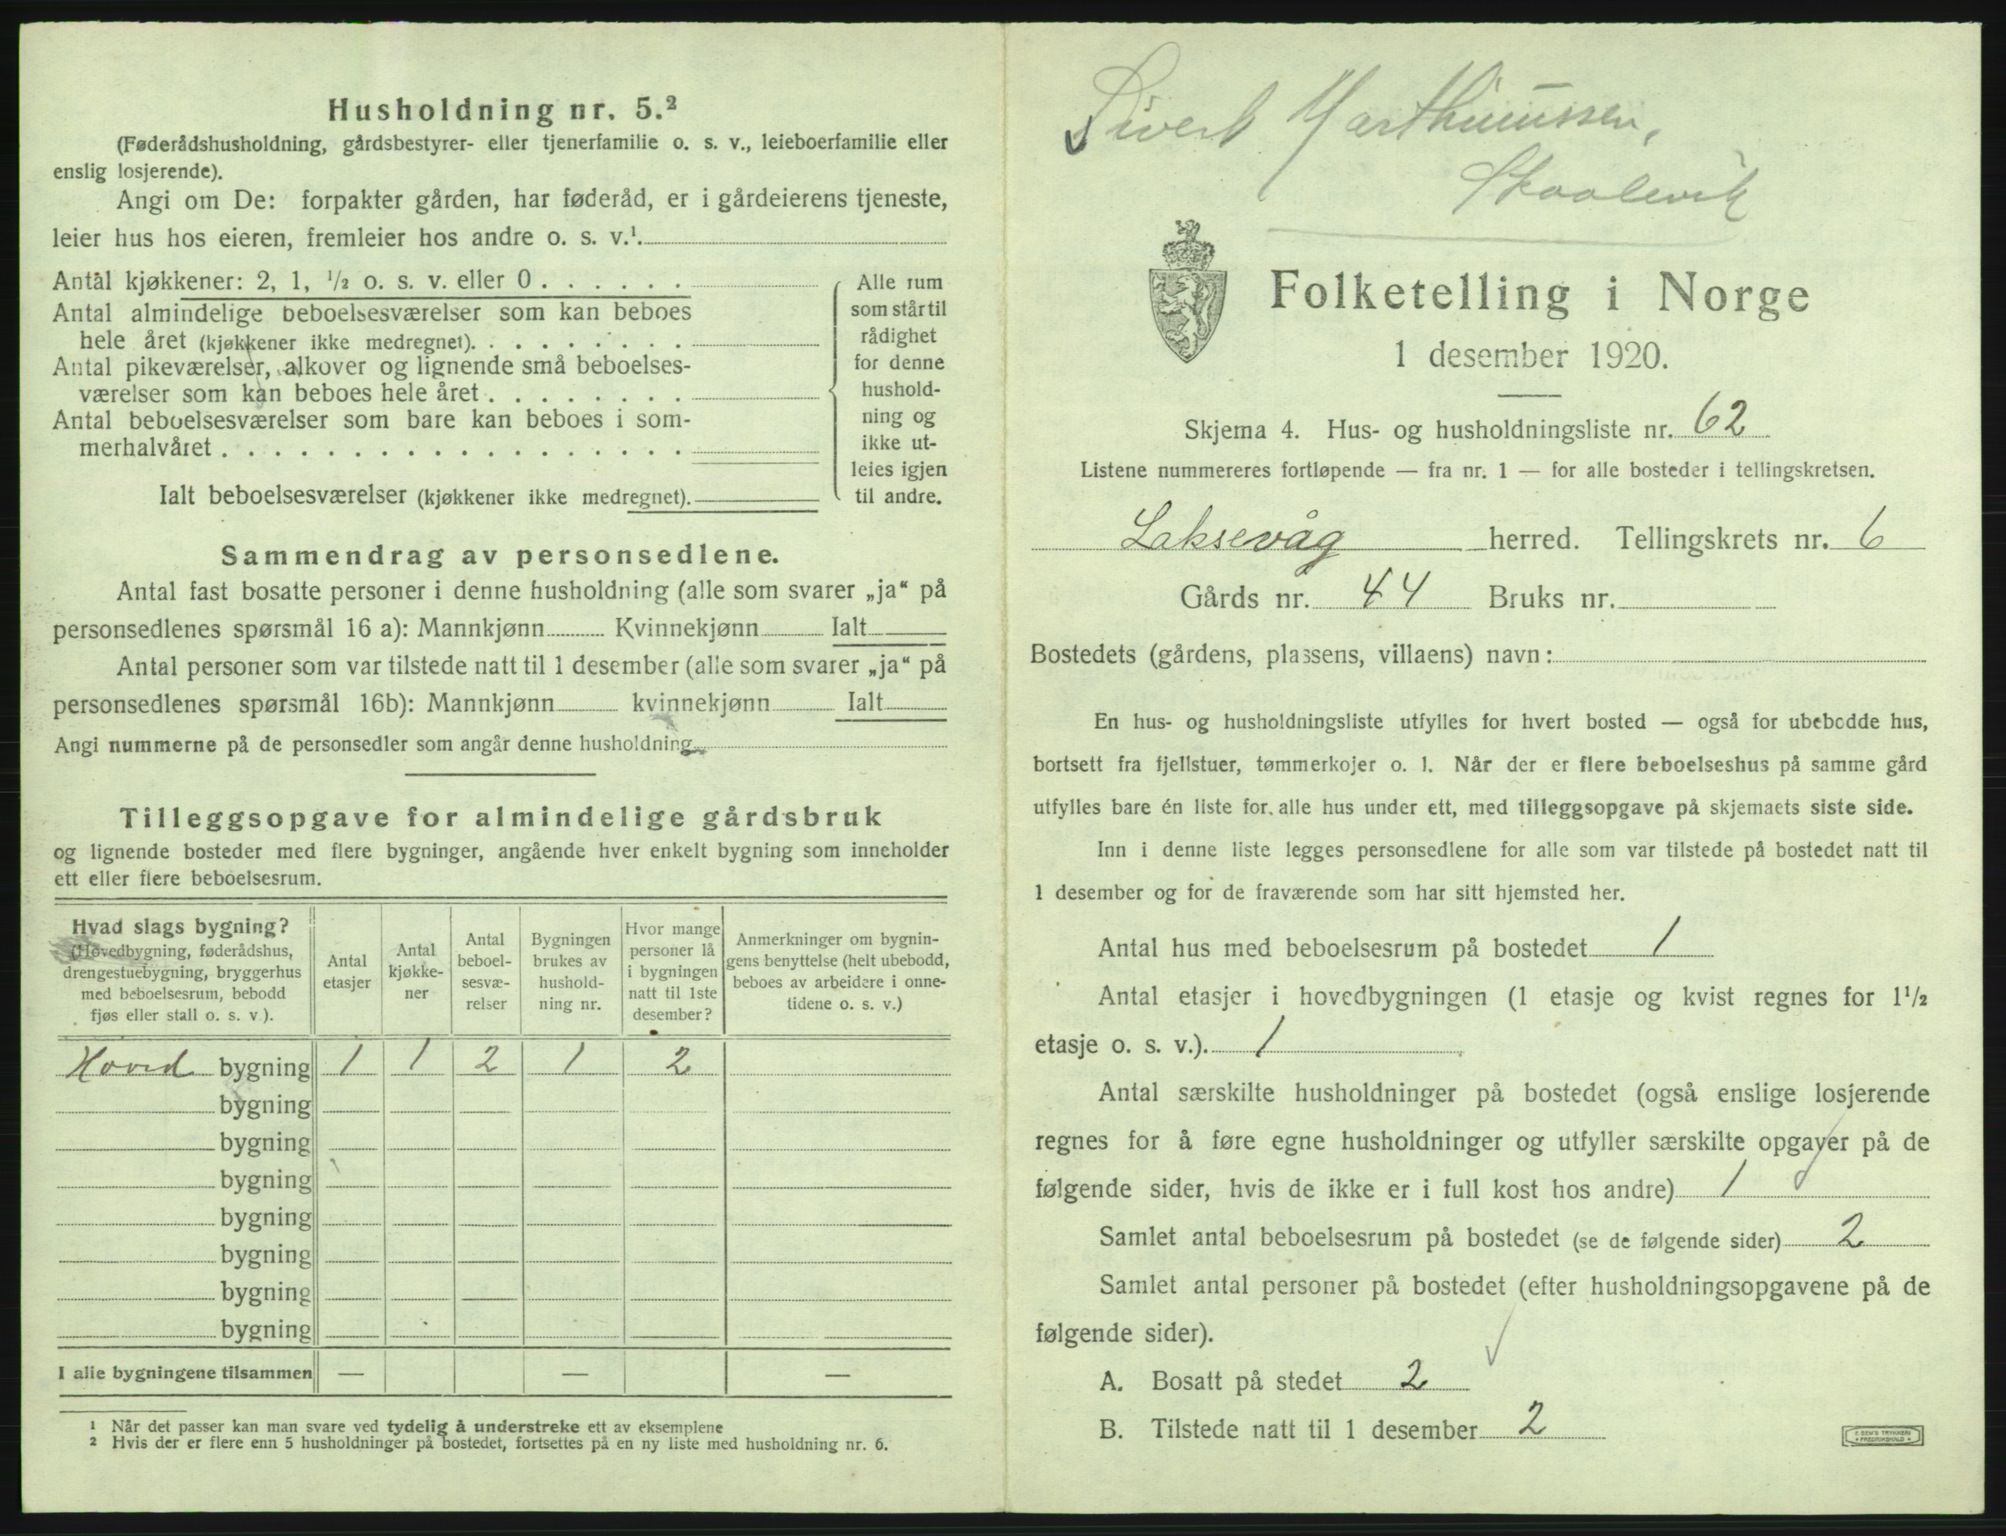 Husholdning nr. 5.²
(Føderådshusholdning, gårdsbestyrer- eller tjenerfamilie o. s. v., leieboerfamilie eller
enslig losjerende).
Angi om De: forpakter gården, har føderåd, er i gårdeierens tjeneste,
leier hus hos eieren, fremleier hos andre o. s. v.¹
Antal kjøkkener: 2, 1, ½ o. s. v. eller 0 . . . . . .
Antal almindelige beboelsesværelser som kan beboes
hele året (kjøkkener ikke medregnet). . . . . . . . .
Antal pikeværelser, alkover og lignende små beboelses-
værelser som kan beboes hele året . . . . . . . .
Antal beboelsesværelser som bare kan beboes i som-
merhalvåret . . . . . . . . . . . . . . . . . .
Ialt beboelsesværelser (kjøkkener ikke medregnet).
Alle rum
som står til
rådighet
for denne
hushold-
ning og
ikke ut-
leies igjen
til andre.
Sammendrag av personsedlene.
Antal fast bosatte personer i denne husholdning (alle som svarer „ja“ på
personsedlenes spørsmål 16 a): Mannkjønn Kvinnekjønn Ialt
Antal personer som var tilstede natt til 1 desember (alle som svarer „ja“ på
personsedlenes spørsmål 16b): Mannkjønn kvinnekjønn Ialt
Angi nummerne på de personsedler som angår denne husholdning
Tilleggsopgave for almindelige gårdsbruk
og lignende bosteder med flere bygninger, angående hver enkelt bygning som inneholder
ett eller flere beboelsesrum.
Hvad slags bygning?
(Hovedbygning, føderådshus,
drengestuebygning, bryggerhus
med beboelsesrum, bebodd
fjøs eller stall o. s. v.).
Antal
etasjer
Antal
kjøkke-
ner
Antal
beboel-
sesvæ-
relser
Bygningen
brukes av
hushold-
ning nr.
Hvor mange
personer lå
i bygningen
natt til 1ste
desember?
Anmerkninger om bygnin-
gens benyttelse (helt ubebodd,
beboes av arbeidere i onne-
tidene o. s. v.)
Hoved bygning 1 1 2 1 2
bygning
bygning
bygning
bygning
bygning
bygning
bygning
I alle bygningene tilsammen — — —
¹ Når det passer kan man svare ved tydelig å understreke ett av eksemplene
² Hvis der er flere enn 5 husholdninger på bostedet, fortsettes på en ny liste med husholdning nr. 6.
Sivert Marthinussen,
Skaalevik
Folketelling i Norge
1 desember 1920.
Skjema 4. Hus- og husholdningsliste nr. 62
Listene nummereres fortløpende — fra nr. 1 — for alle bosteder i tellingskretsen.
Laksevåg herred. Tellingskrets nr. 6
Gårds nr. 44 Bruks nr.
Bostedets (gårdens, plassens, villaens) navn:
En hus- og husholdningsliste utfylles for hvert bosted — også for ubebodde hus,
bortsett fra fjellstuer, tømmerkojer o. l. Når der er flere beboelseshus på samme gård
utfylles bare én liste for alle hus under ett, med tilleggsopgave på skjemaets siste side.
Inn i denne liste legges personsedlene for alle som var tilstede på bostedet natt til
1 desember og for de fraværende som har sitt hjemsted her.
Antal hus med beboelsesrum på bostedet 1
Antal etasjer i hovedbygningen (1 etasje og kvist regnes for 1½
etasje o. s. v.). 1
Antal særskilte husholdninger på bostedet (også enslige losjerende
regnes for å føre egne husholdninger og utfyller særskilte opgaver på de
følgende sider, hvis de ikke er i full kost hos andre) 1
Samlet antal beboelsesrum på bostedet (se de følgende sider) 2
Samlet antal personer på bostedet (efter husholdningsopgavene på de
følgende sider).
A. Bosatt på stedet 2
B. Tilstede natt til 1 desember 2